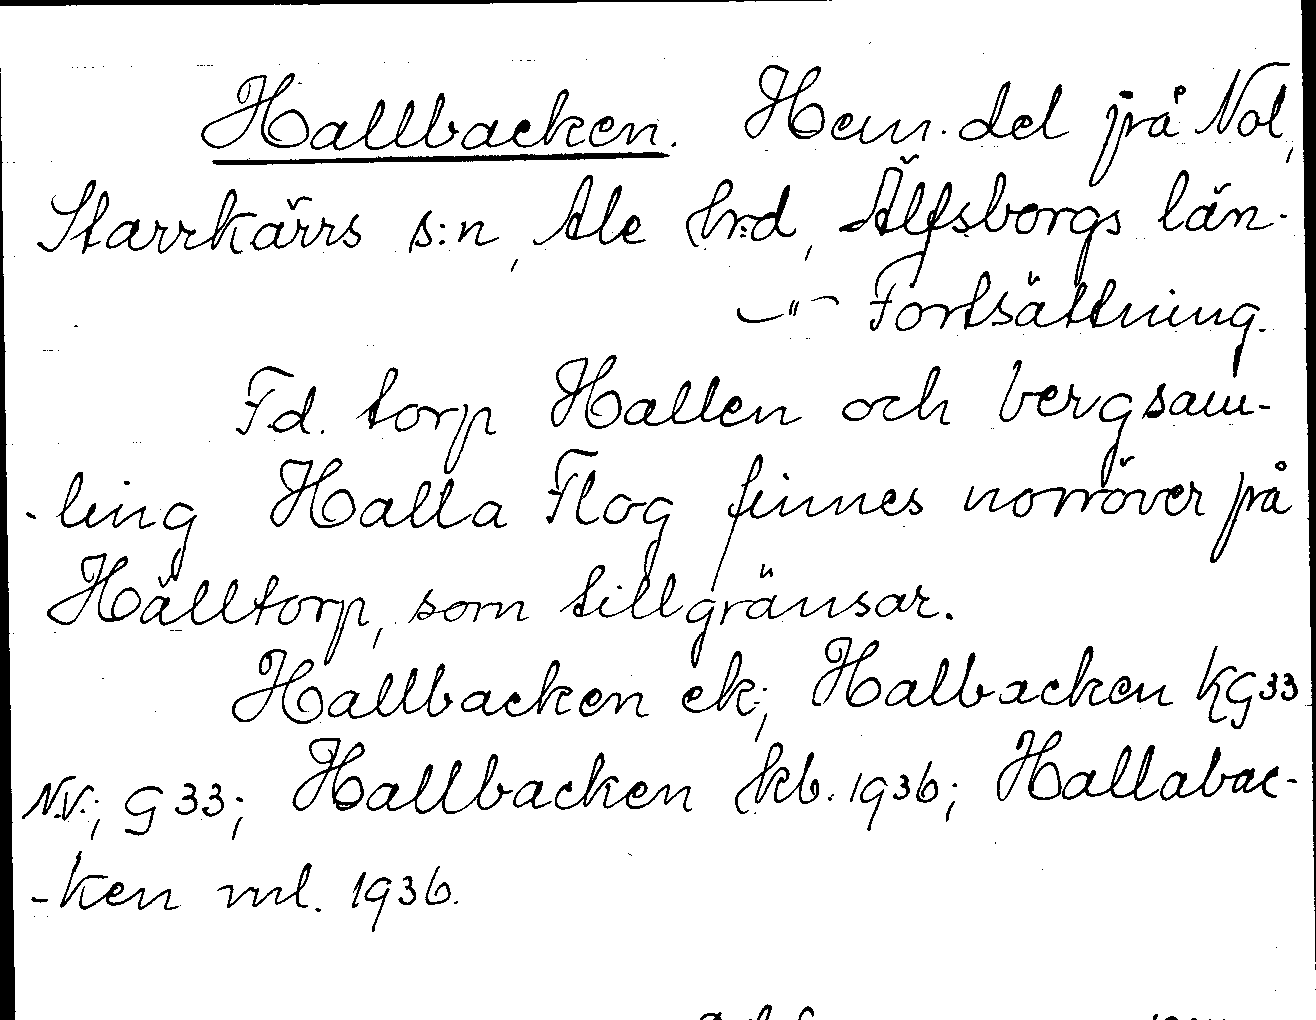 Hallbacken. Hem. del på Nol,
Starrkärrs s:n, Ale hrd, Älfsborgs län.
-"- Fortsättning.
Fd. torp Hallen och bergsam-
-ling Halla Flog finnes norröver på
Hålltorp, som tillgränsar.
Hallbacken ek; Halbacken KG33
N.V.; G33; Hallbacken hkb. 1936; Hallabac-
-ken ml. 1936.